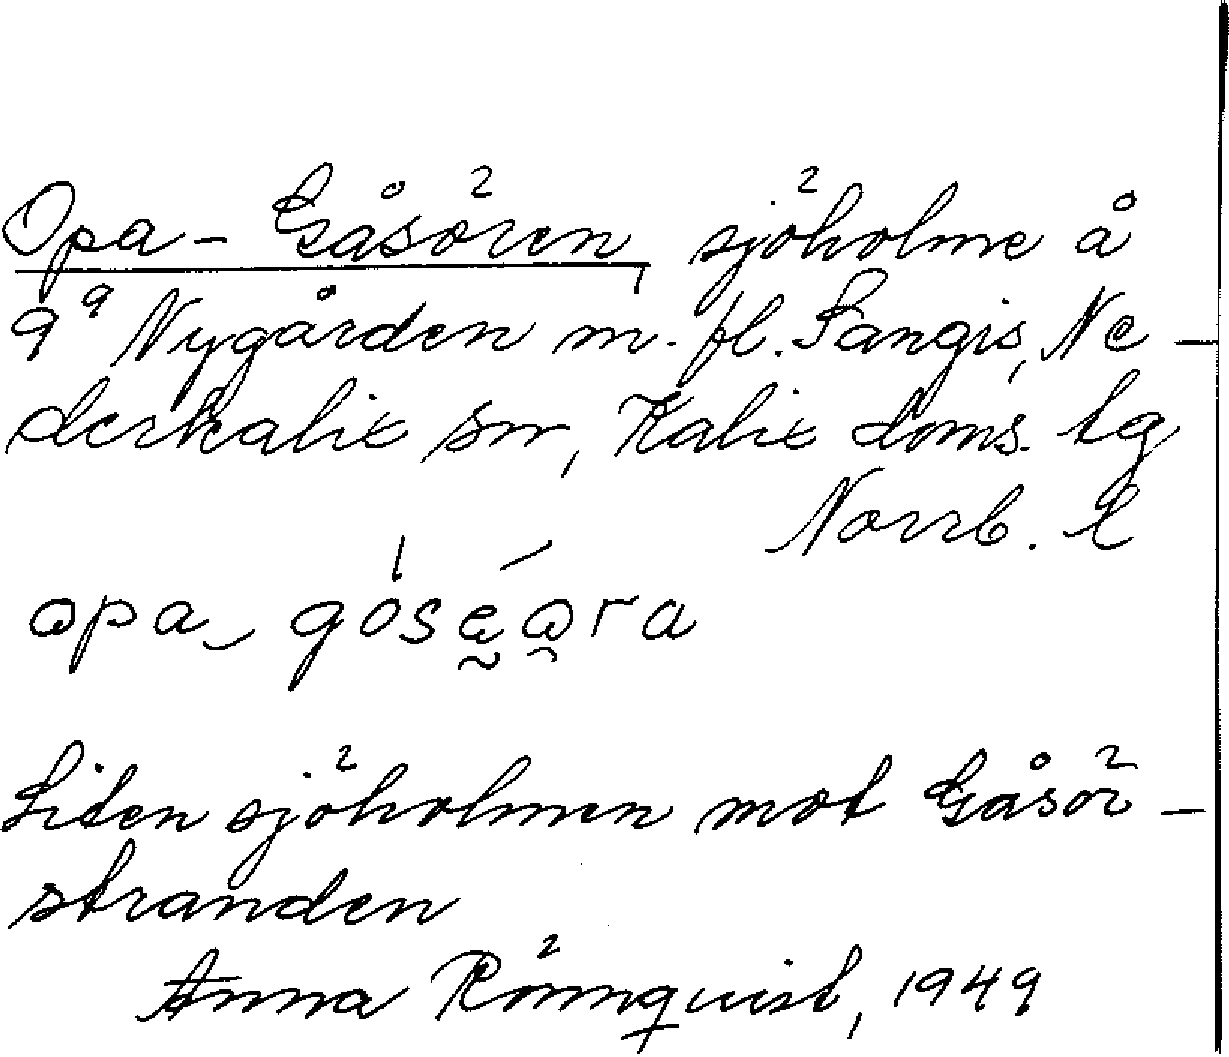 Opa-Gåsören, sjöholme å
9⁹ Nygården m. fl. Sangis, Ne-
derkalix sn, Kalix doms. lg
Norrb. l
opa-
Liten sjöholmen mot Gåsör-
stranden
Anna Rönnquist, 1949